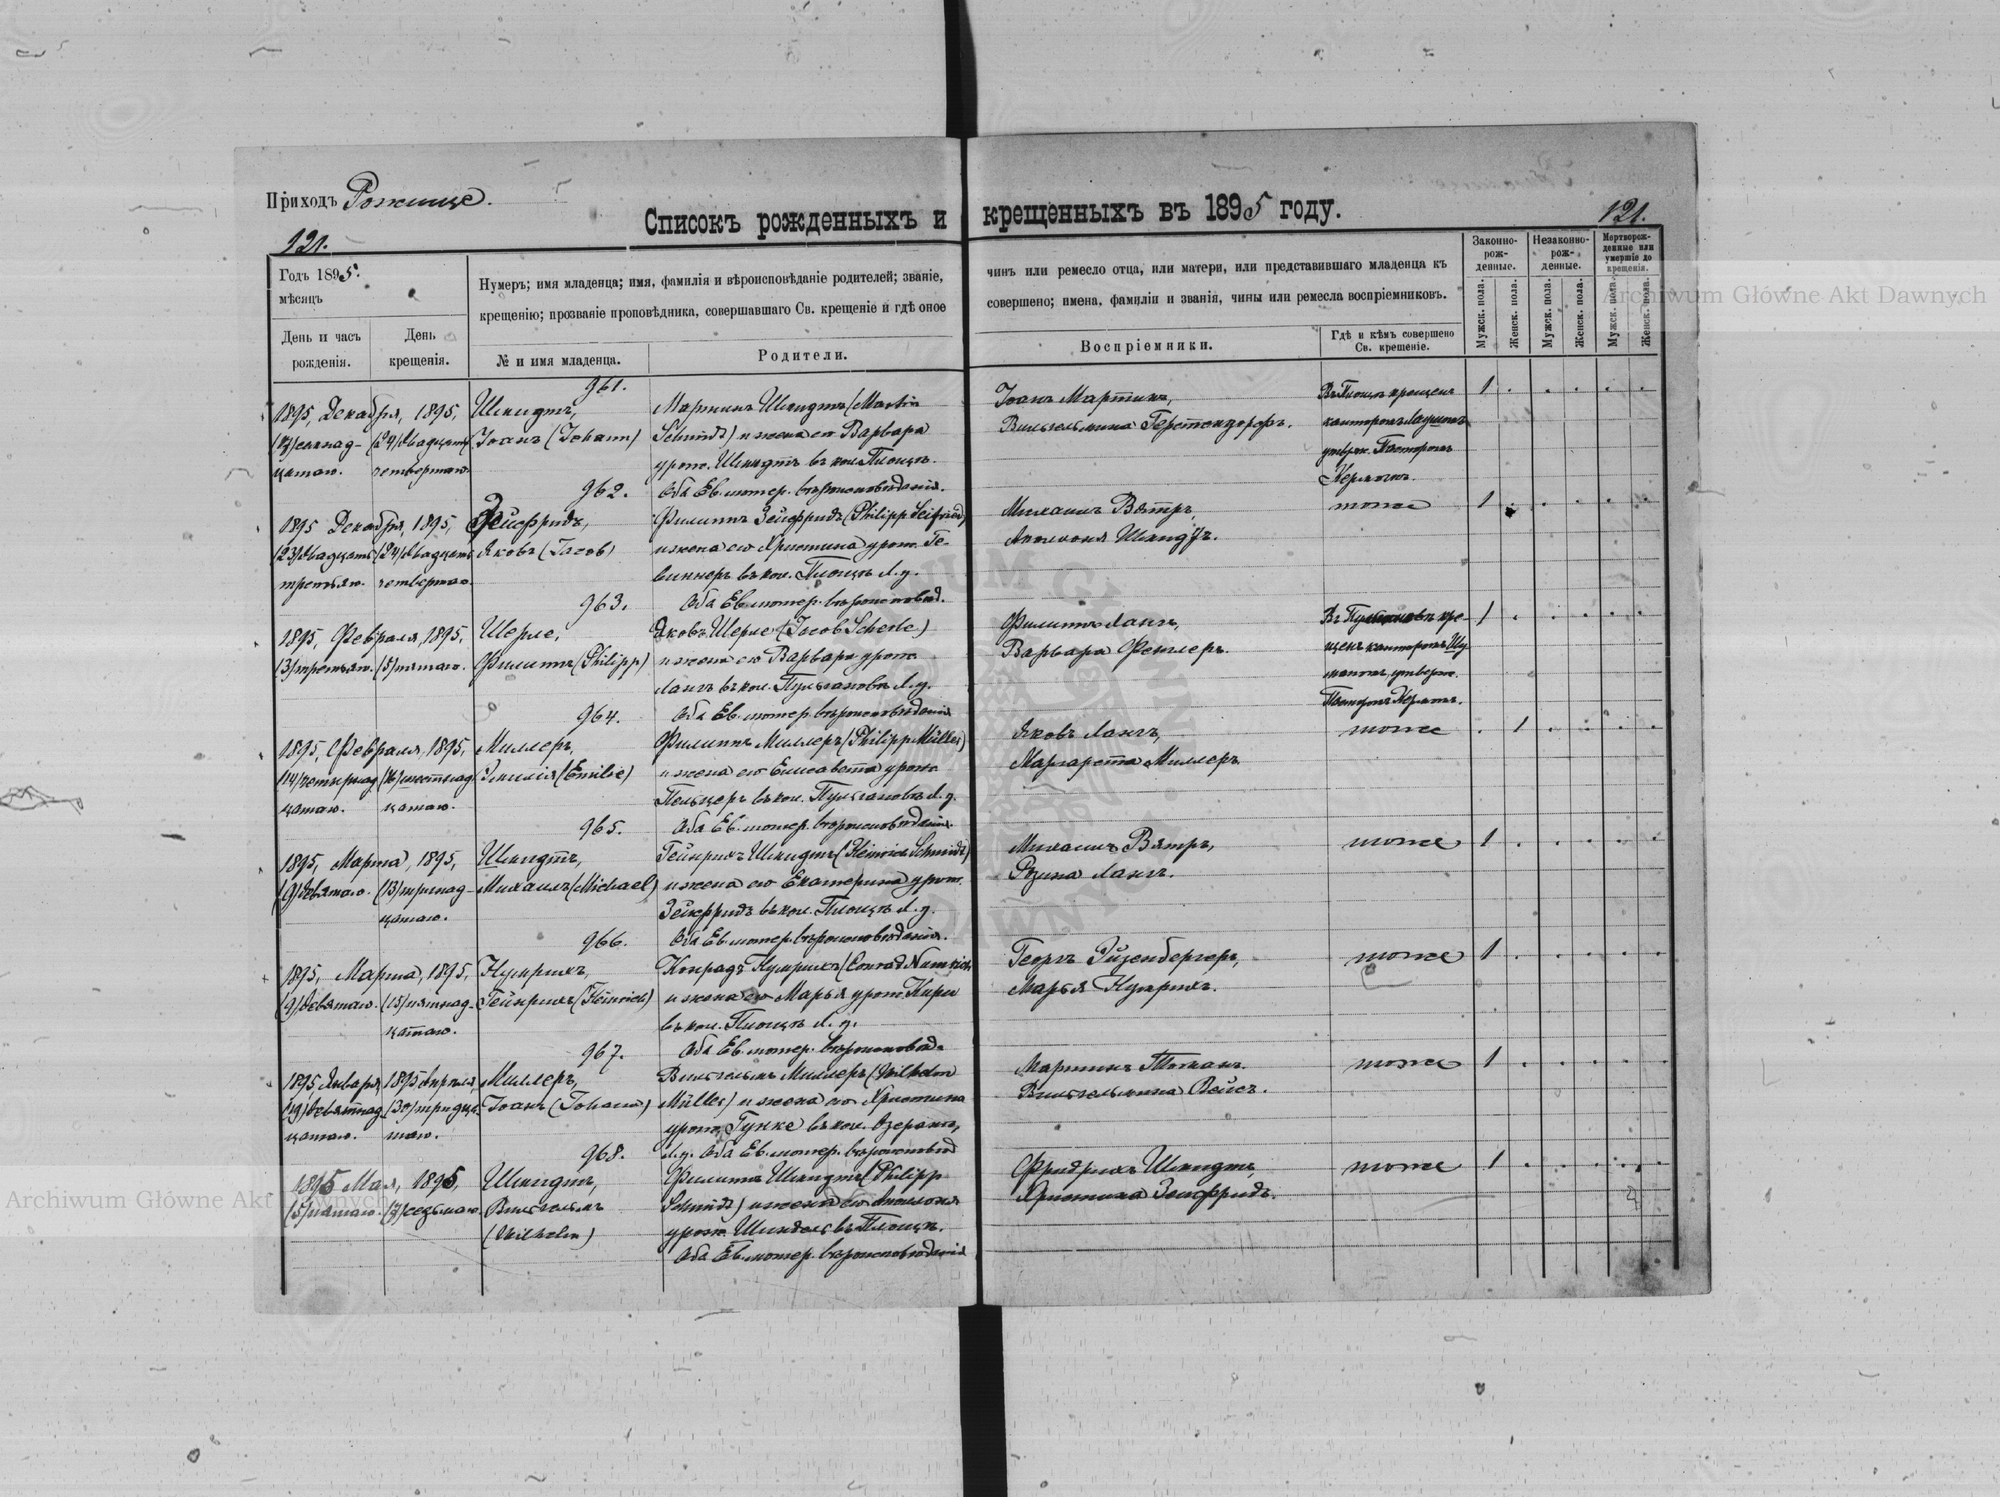 Приходъ Рожище.
Списокъ рожденныхъ и крещенныхъ въ 1895 году.
121.
121.
Годъ 1895.
мѣсяцъ
День и часъ рожденія.
День крещенія.
Нумеръ; имя младенца; имя, фамилія и вѣроисповѣданіе родителей; званіе,
крещенію; прозваніе проповѣдника, совершавшаго Св. крещеніе и гдѣ оное
№ и имя младенца.
Родители.
чинъ или ремесло отца, или матери, или представившаго младенца къ
совершено; имена, фамиліи и званія, чины или ремесла воспріемниковъ.
Воспріемники.
Гдѣ и кѣмъ совершено
Св. крещеніе.
Законно-
рож-
денные.
Незаконно-
рож-
денные.
Мертворож-
денные или
умершіе до
крещенія.
Мужск. пола.
Женск. пола.
Мужск. пола.
Женск. пола.
Мужск. пола.
Женск. пола.
961.
1895, Декабря, 1895,
Шмидтъ,
Мартинъ Шмидтъ (Martin
Іоанъ Мартинъ,
Въ Плоцкъ крещенъ
1
Іоанъ (Johann)
Schmidt) и жена его Варвара
Вильгельмина Герстендорфъ.
канторомъ
цатаго.
четвертаго.
урож. Шмидтъ въ кол. Плоцкъ.
Оба Ев. лютер. вѣроисповѣданія.
962.
1895 Декабря, 1895,
Зейфридъ,
Филиппъ Зейфридъ (Philipp Seifried)
Михаилъ Вятръ,
тоже
1
(23) двадцать
(24) двадцать
Яковъ (Jacob)
и жена его Христина урож. Ге-
третьяго.
четвертаго
виннеръ въ кол. Плоцкъ Л. у.
Оба Ев. лютер. вѣроисповѣд.
963.
1895, Февраля, 1895,
Шерле,
Яковъ Шерле (Jacob Scherle)
Филиппъ Лангъ,
1
(3) третьяго.
(5) пятаго.
Филиппъ (Philipp)
и жена его Варвара урож.
Варвара Феллеръ.
Лангъ въ кол. Пульгановъ Л. у.
Оба Ев. лютер. вѣроисповѣданія
964.
1895, Февраля, 1895,
Миллеръ,
Филиппъ Миллеръ (Philipp Müller)
Яковъ Лангъ,
тоже
1
(14) четырнад
(16) шестнад
Эмилія (Emilie)
и жена его Елисавета урож.
Маргарета Миллеръ
цатаго.
цатаго.
Пельцеръ въ кол. Пульгановъ Л. у.
Оба Ев. лютер. вѣроисповѣданія.
965.
1895, Марта, 1895,
Шмидтъ,
Гейнрихъ Шмидтъ (Heinrich Schmidt)
Михаилъ Вятръ,
тоже
1
(9) девятаго.
(13) тринад-
цатаго.
Михаилъ (Michael)
и жена его Екатерина урож.
Розина Лангъ.
Зейфридъ въ кол. Плоцкъ Л. у.
Оба Ев. лютер. вѣроисповѣданія.
966.
1895, Марта, 1895,
Нумрихъ,
Конрадъ Нумрихъ (Conrad Numrich
Георгъ Эйзенбергеръ,
тоже
1
(9) девятаго.
(15) пятнад-
цатаго.
Гейнрихъ (Heinrich)
и жена его Марья урож.
Марья Нумрихъ.
въ кол. Плоцкъ Л. у.
Оба Ев. лютер. вѣроисповѣд.
967.
1895 Января,
1895 Апрѣля,
Миллеръ,
Вильгельмъ Миллеръ (Wilhelm
тоже
1
(19) девятнад
(30) тридца-
Іоанъ (Johann)
Müller) и жена его Христина
Вильгельмина Вейсъ.
цатаго.
таго.
урож. Гунке въ кол. Озерано,
Л. у. Оба Ев. лютер. вѣроисповѣд
968.
1895 Мая, 1895,
Шмидтъ,
Филиппъ Шмидтъ (Philipp
Фридрихъ Шмидтъ,
тоже
1
(5) пятаго.
(7) седьмаго.
Вильгельмъ
Schmidt) и жена его Аполонія
Христина Зейфридъ.
(Wilhelm)
урож. Шиндель въ Плоцкъ.
Оба Ев. лютер. вѣроисповѣданія
Archiwum Główne Akt Dawnych
Archiwum Główne Akt Dawnych